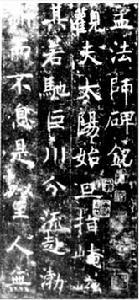 孟法師碑銘
觀夫太陽始旦指崦嵫
其若馳巨川分流赴渤
澥而不息是以至人